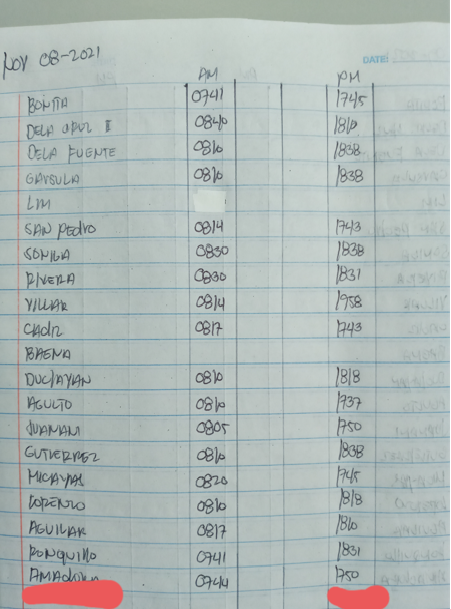 NOV 08-2021
DATE:
AM PM
BONITA 0741 1745
DELA CRUZ II 0840 1810
DELA FUENTE 0810 1838
GARSULA 0810 1838
LIM
SAN PEDRO 0814 1743
SONILA 0830 1838
RIVERA 0830 1831
VILLAR 0814 1958
CADIZ 0817 1743
BAENA
DUCLAYAN 0810 1818
AGULTO 0810 1737
JUANANI 0805 1750
GUTIERREZ 0810 1838
MICAYAS 0820 1745
LORENZO 0810 1818
AGUILAR 0817 1810
RONQUILLO 0741 1831
0744 1750